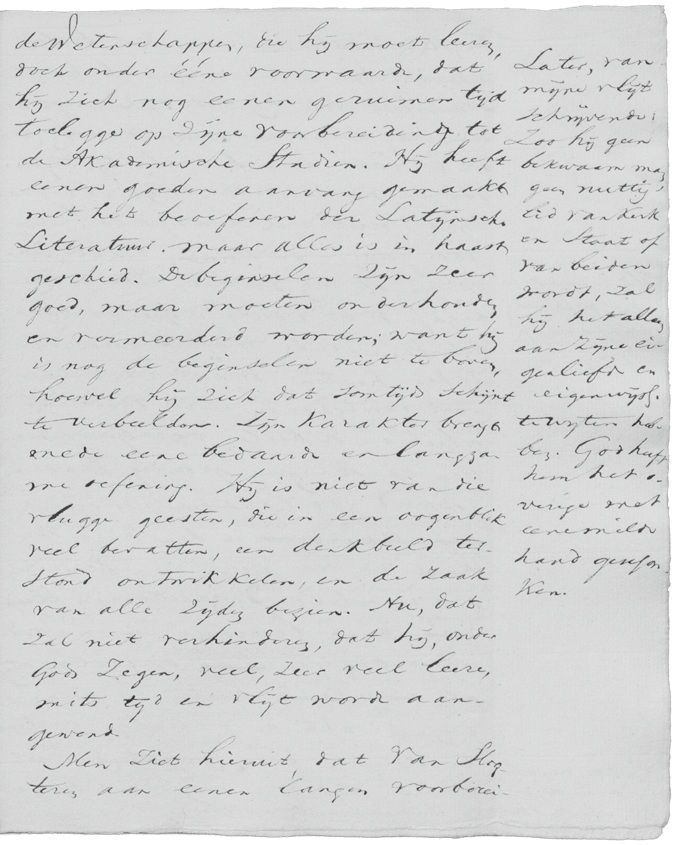 de Wetenschappen, die hij moet leeren,
doch onder ééne voorwaarde, dat
hij zich nog eenen geruimen tijd
toelegge op zijne voorbereiding tot
de Akademische Studien. Hij heeft
eenen goeden aanvang gemaakt
met het beoefenen der Latijnsche
Literatuur. maar alles is in haast
geschied. De beginselen zijn zeer
goed, maar moeten onderhouden
en vermeerderd worden; want hij
is nog de beginselen niet te boven,
hoewel hij zich dat somtijds schijnt
te verbeelden. Zijn karakter brengt
mede eene bedaarde en langza-
me oefening. Hij is niet van die
vlugge geesten, die in een oogenblik
veel bevatten, een denkbeeld ter-
stond ontwikkelen, en de zaak
van alle zijden bezien. Nu, dat
zal niet verhinderen, dat hij, onder
Gods Zegen, veel, zeer veel leere,
mits tijd en vlijt worde aan-
gewend.
Men ziet hieruit, dat Van Slog-
teren aan eenen langen voorberei-
Later, van
mijne vlijt
schrijvende:
Zoo hij geen
bekwaam man,
geen nuttig
lid van kerk
en Staat of
van beiden
wordt, zal
hij het alleen
aan zijne ei-
genliefde en
eigenwijsh.
te wijten heb-
ben. God heeft
hem het o-
verige met
eene milde
hand geschon-
ken.